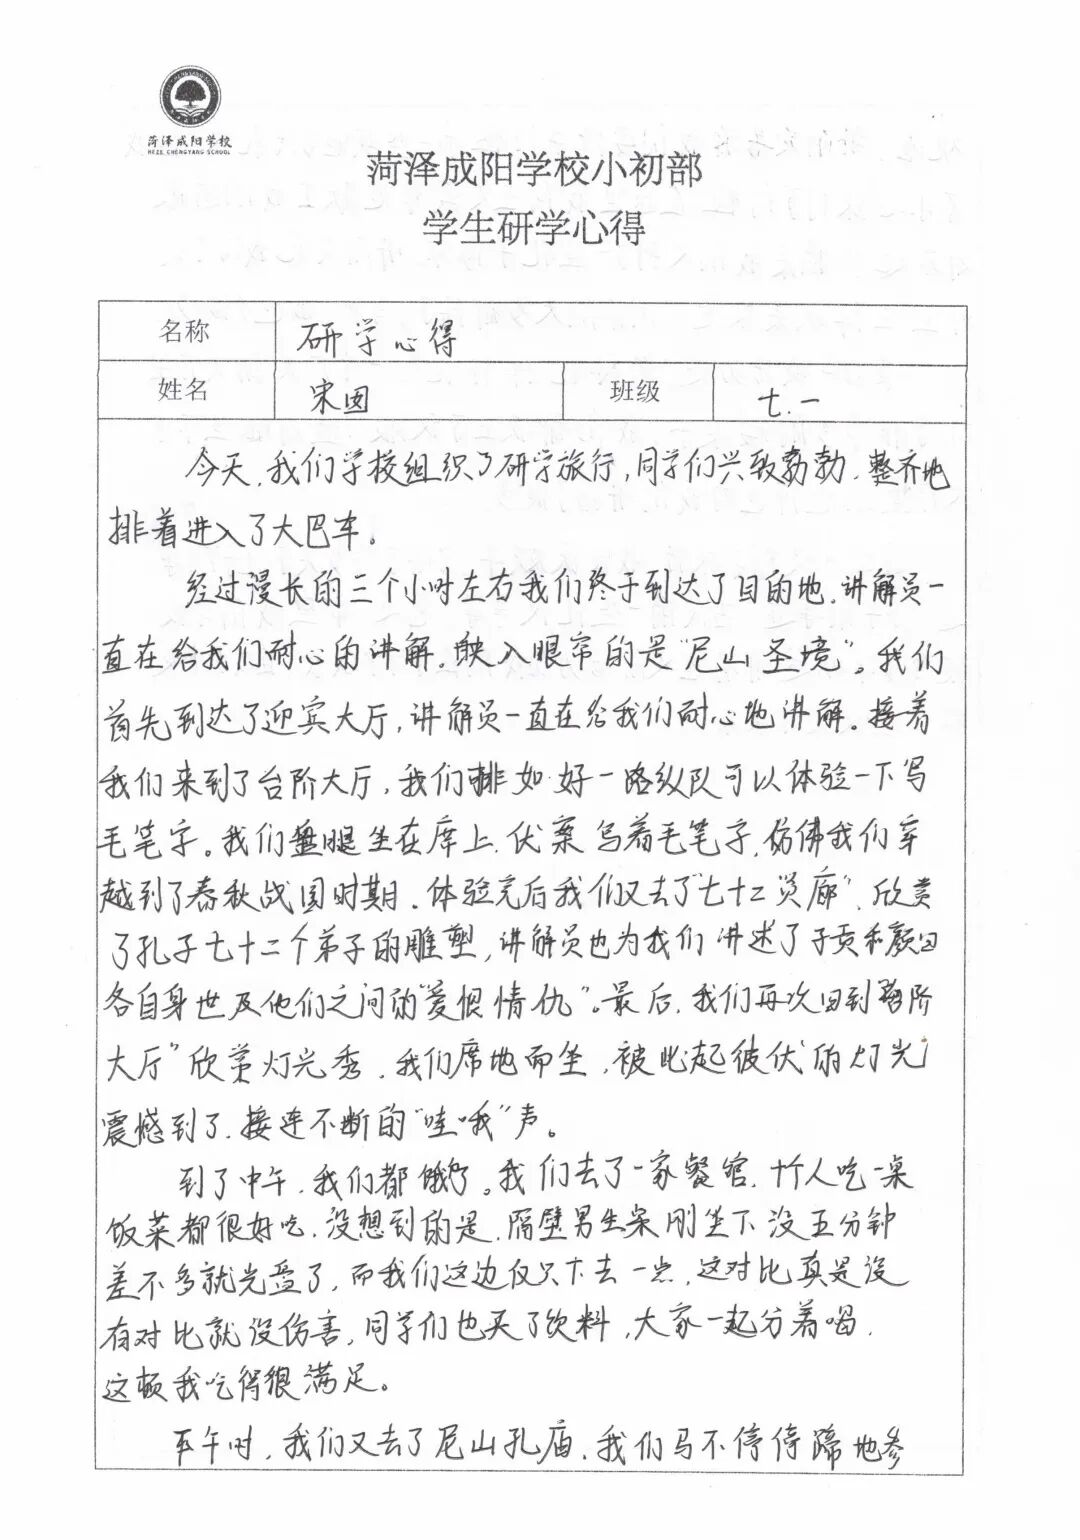 菏泽成阳学校
HEZE CHENGYANG SCHOOL
菏泽成阳学校小初部
学生研学心得
名称 研学心得
姓名 宋囡 班级 七.一
今天,我们学校组织了研学旅行,同学们兴致勃勃,整齐地
排着进入了大巴车。
经过漫长的三个小时左右我们终于到达了目的地,讲解员一
直在给我们耐心的讲解,映入眼帘的是“尼山圣境”。我们
首先到达了迎宾大厅,讲解员一直在给我们耐心地讲解。接着
我们来到了台阶大厅,我们排如好一路纵队可以体验一下写
毛笔字。我们盘腿坐在席上,伏案写着毛笔字,仿佛我们穿
越到了春秋战国时期。体验完后我们又去了“七十二贤廊”,欣赏
了孔子七十二个弟子的雕塑,讲解员也为我们讲述了子贡和颜回
各自身世及他们之间的“爱恨情仇”。最后,我们再次回到台阶
大厅”欣赏灯光秀,我们席地而坐,被此起彼伏的灯光
震撼到了,接连不断的“哇哦”声。
到了中午,我们都饿了。我们去了一家餐馆,十个人吃一桌
饭菜都很好吃,没想到的是,隔壁男生桌刚坐下没五分钟
差不多就光盘了,而我们这边仅只下去一点,这对比真是没
有对比就没伤害,同学们也买了饮料,大家一起分着喝,
这顿我吃得很满足。
下午时,我们又去了尼山孔庙,我们马不停停蹄地参